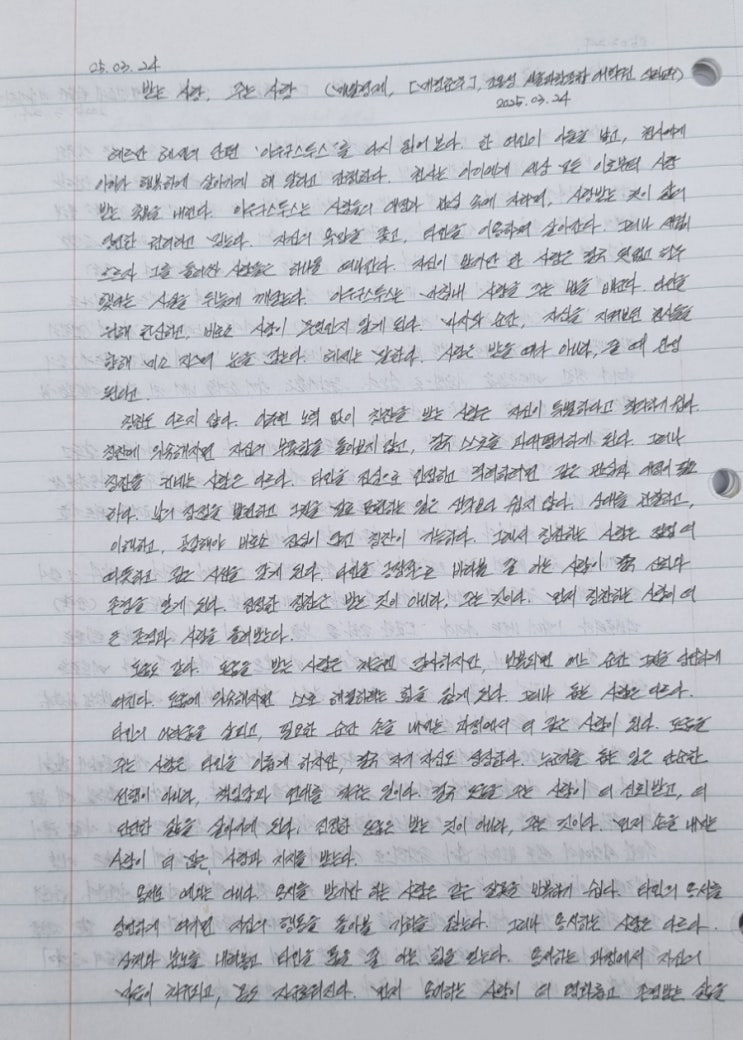 25.03.24
받는 사랑, 주는 사랑 (매일경제, [매경춘추], 서울과학종합대학원
2025.03.24
헤르만 헤세의 단편 '아우구스투스'를 다시 읽어 본다. 한 여인이 아들을 낳고, 천사에게
아이가 행복하게 살아가게 해 달라고 간청한다. 천사는 아이에게 세상 모든 이로부터 사랑
받는 축복을 내린다. 아우구스투스는 사람들의 애정과 관심 속에 자라며, 사랑받는 것이 삶의
당연한 권리라고 믿는다. 자신의 욕망을 좇고, 타인을 이용하며 살아간다. 그러나 세월이
흐르자 그를 둘러싼 사람들은 하나둘 떠나간다. 자신이 받아만 한 사랑은 결국 덧없고 허무
했다는 사실을 뒤늦게 깨닫는다. 아우구스투스는 마침내 사랑을 주는 법을 배운다. 타인을
위해 헌신하며, 비로소 사랑이 무엇인지 알게 된다. 마지막 순간, 자신을 지켜보던 천사들을
향해 미소 지으며 눈을 감는다. 헤세는 말한다. 사랑은 받을 때가 아니라, 줄 때 완성
된다고.
칭찬도 다르지 않다. 아무런 노력 없이 칭찬을 받는 사람은 자신이 특별하다고 착각하기 쉽다.
칭찬에 익숙해지면 자신의 부족함을 돌아보지 않고, 결국 스스로를 과대평가하게 된다. 그러나
칭찬을 건네는 사람은 다르다. 타인을 진심으로 인정하고 격려하려면 깊은 관심과 애정이 필요
하다. 남의 장점을 발견하고 그것을 말로 표현하는 일은 생각보다 쉽지 않다. 상대를 관찰하고,
이해하고, 공감해야 비로소 진심이 담긴 칭찬이 가능하다. 그래서 칭찬하는 사람은 점점 더
따뜻하고 깊은 시선을 갖게 된다. 타인을 긍정적으로 바라볼 줄 아는 사람이 결국 신뢰와
존경을 얻게 된다. 진정한 칭찬은 받는 것이 아니라, 주는 것이다. 먼저 칭찬하는 사람이 더
큰 존경과 사랑을 돌려받는다.
도움도 같다. 도움을 받는 사람은 처음엔 감사하지만, 반복되면 어느 순간 그것을 당연하게
여긴다. 도움에 익숙해지면 스스로 해결하려는 힘을 잃게 된다. 그러나 돕는 사람은 다르다.
타인의 어려움을 살피고, 필요한 순간 손을 내미는 과정에서 더 깊은 사람이 된다. 도움을
주는 사람은 타인을 이롭게 하지만, 결국 자기 자신도 성장한다. 누군가를 돕는 일은 단순한
선행이 아니라, 책임감과 연대를 키우는 일이다. 결국 도움을 주는 사람이 더 신뢰받고, 더
단단한 삶을 살아가게 된다. 진정한 도움은 받는 것이 아니라, 주는 것이다. 먼저 손을 내미는
사람이 더 많은 사랑과 지지를 받는다.
용서도 예외는 아니다. 용서를 받기만 하는 사람은 같은 잘못을 반복하기 쉽다. 타인의 용서를
당연하게 여기면 자신의 행동을 돌아볼 기회를 잃는다. 그러나 용서하는 사람은 다르다.
상처와 분노를 내려놓고 타인을 품을 줄 아는 힘을 얻는다. 용서하는 과정에서 자신의
마음이 치유되고, 더욱 자유로워진다. 먼저 용서하는 사람이 더 평화롭고 존경받는 삶을